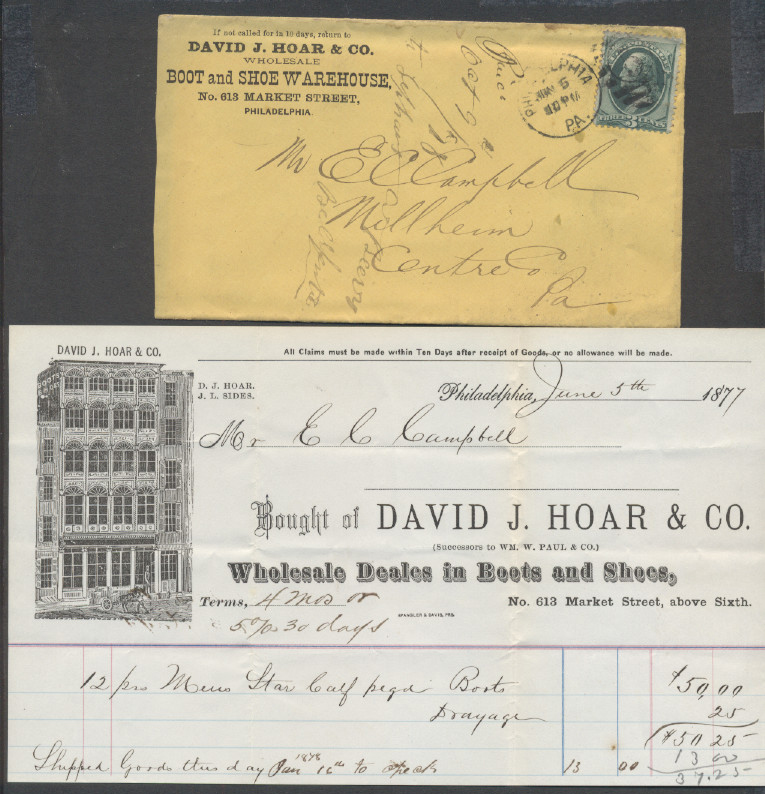 If not called for in 10 days, return to
DAVID J. HOAR & CO.
WHOLESALE
BOOT and SHOE WAREHOUSE,
No. 613 MARKET STREET,
PHILADELPHIA.
PHILADELPHIA
JUN 5
PA.
THREE CENTS
Mr E C Campbell
Millheim
Centre Co
Pa
DAVID J. HOAR & CO.
All Claims must be made within Ten Days after receipt of Goods, or no allowance will be made.
D. J. HOAR.
J. L. SIDES.
Philadelphia, June 5th 1877
Mr E C Campbell
Bought of DAVID J. HOAR & CO.
(Successors to WM. W. PAUL & CO.)
Wholesale Deales in Boots and Shoes,
Terms, 4 mos or
No. 613 Market Street, above Sixth.
5% 30 days
SPANGLER & DAVIS, PRS.
12 prs Mens Star Calf pegd Boots $50.00
Drayage 25
$50 25
Shipped Goods this day Jan 16th 1878 to 13 00
13 00
37.25